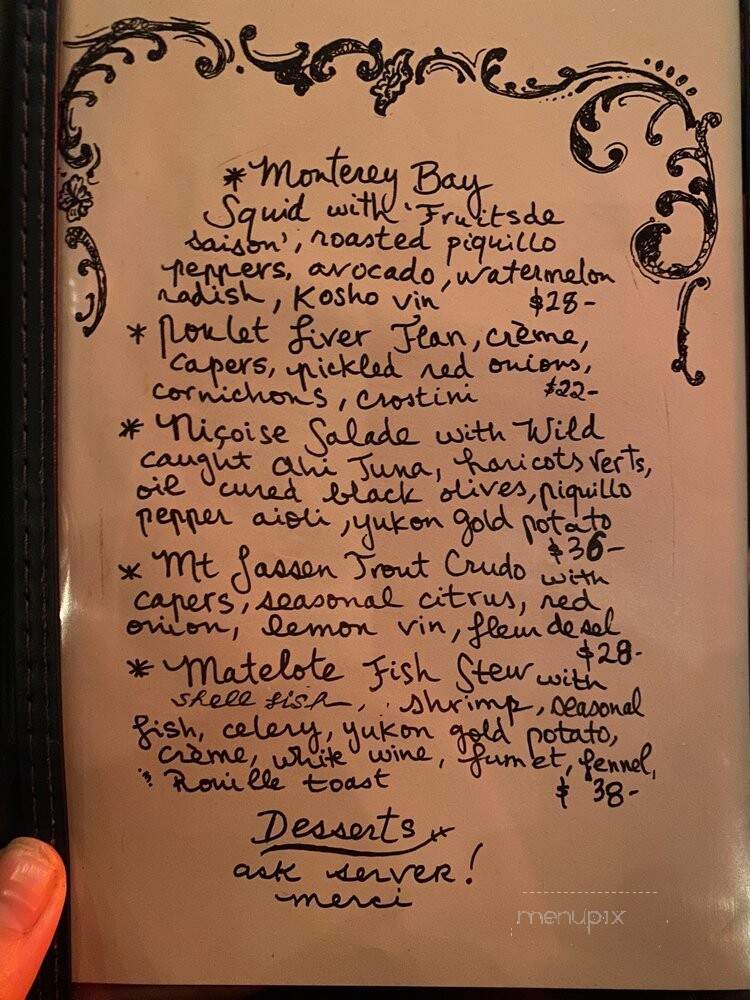 * Monterey Bay
Squid with 'Fruits de
saison', roasted piquillo
peppers, avocado, watermelon
radish, Kosho vin $28-
* Poulet Liver Flan, crème,
capers, pickled red onions,
cornichons, crostini $22-
* Niçoise Salade with Wild
caught Ahi Tuna, haricots verts,
oil cured black olives, piquillo
pepper aioli, yukon gold potato
$36-
* Mt Lassen Trout Crudo with
capers, seasonal citrus, red
onion, lemon vin, fleur de sel
$28-
* Matelote Fish Stew with
shell fish, shrimp, seasonal
fish, celery, yukon gold potato,
crème, white wine, fumet, fennel,
& Rouille toast $38-
Desserts
ask server!
merci
menupix